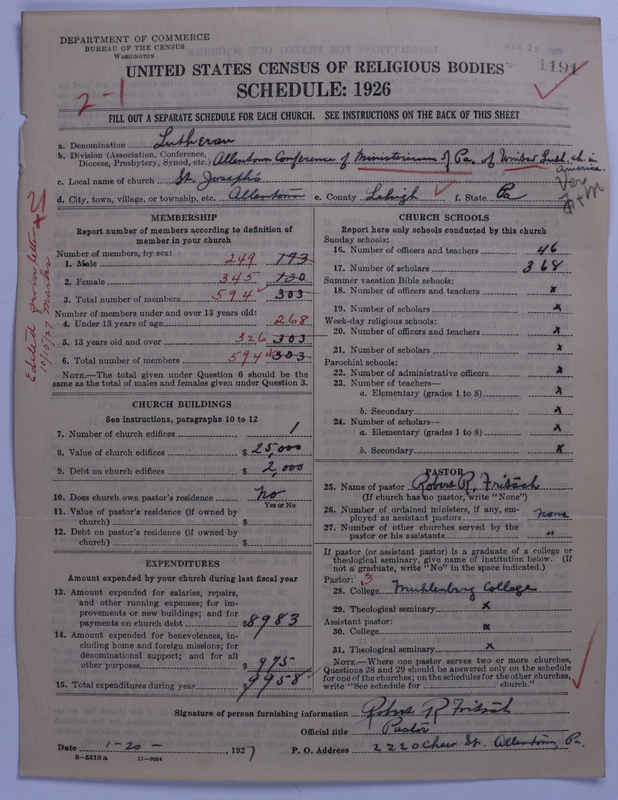 DEPARTMENT OF COMMERCE
BUREAU OF THE CENSUS
WASHINGTON
UNITED STATES CENSUS OF RELIGIOUS BODIES
1191
SCHEDULE: 1926
2-1
FILL OUT A SEPARATE SCHEDULE FOR EACH CHURCH. SEE INSTRUCTIONS ON THE BACK OF THIS SHEET
a. Denomination Lutheran
b. Division (Association, Conference, Diocese, Presbytery, Synod, etc.) Allentown Conference of Ministerium of Pa. of United Luth. ch. in America.
c. Local name of church St. Joseph's
d. City, town, village, or township, etc. Allentown e. County Lehigh f. State Pa
MEMBERSHIP
Report number of members according to definition of
member in your church
Number of members, by sex:
1. Male 249 173
2. Female 345 130
3. Total number of members 594 303
Number of members under and over 13 years old:
4. Under 13 years of age 268
5. 13 years old and over 326 303
6. Total number of members 594 303
NOTE.—The total given under Question 6 should be the
same as the total of males and females given under Question 3.
Edited from letter
10/13/27
CHURCH BUILDINGS
See instructions, paragraphs 10 to 12
7. Number of church edifices 1
8. Value of church edifices $ 25,000
9. Debt on church edifices $ 2,000
10. Does church own pastor's residence No
Yes or No
11. Value of pastor's residence (if owned by
church) $
12. Debt on pastor's residence (if owned by
church) $
EXPENDITURES
Amount expended by your church during last fiscal year
13. Amount expended for salaries, repairs,
and other running expenses; for im-
provements or new buildings; and for
payments on church debt $8983
14. Amount expended for benevolences, in-
cluding home and foreign missions; for
denominational support; and for all
other purposes $ 975
15. Total expenditures during year $ 9958
CHURCH SCHOOLS
Report here only schools conducted by this church
Sunday schools:
16. Number of officers and teachers 46
17. Number of scholars 368
Summer vacation Bible schools:
18. Number of officers and teachers x
19. Number of scholars x
Week-day religious schools:
20. Number of officers and teachers x
21. Number of scholars x
Parochial schools:
22. Number of administrative officers x
23. Number of teachers—
a. Elementary (grades 1 to 8) x
b. Secondary x
24. Number of scholars—
a. Elementary (grades 1 to 8) x
b. Secondary x
PASTOR
25. Name of pastor Robert R. Fritsch
(If church has no pastor, write "None")
26. Number of ordained ministers, if any, em-
ployed as assistant pastors none
27. Number of other churches served by the
pastor or his assistants "
If pastor (or assistant pastor) is a graduate of a college or
theological seminary, give name of institution below. (If
not a graduate, write "No" in the space indicated.)
Pastor: 3
28. College Muhlenberg College
29. Theological seminary x
Assistant pastor:
30. College x
31. Theological seminary x
NOTE.—Where one pastor serves two or more churches,
Questions 28 and 29 should be answered only on the schedule
for one of the churches; on the schedules for the other churches,
write "See schedule for church."
Signature of person furnishing information Robert R Fritsch
Official title Pastor
Date 1-20-, 1927 P. O. Address 2220 Chew St. Allentown, Pa.
8—5518a 11—9054